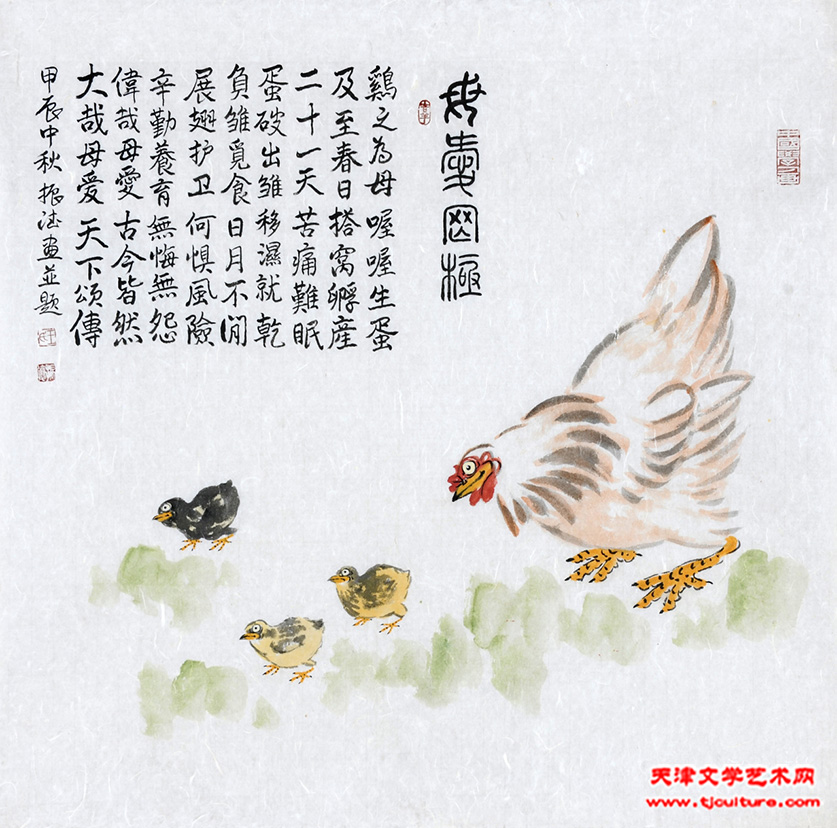 母愛罔極
鷄之為母 喔喔生蛋
及至春日 搭窩孵産
二十一天 苦痛難眠
蛋破出雛 移濕就乾
負雛覓食 日月不閒
展翅护卫 何惧風險
辛勤養育 無悔無怨
偉哉母愛 古今皆然
大哉母爱 天下頌傳
甲辰中秋 振法畫並题
天津文学艺术网
www.tjculture.com